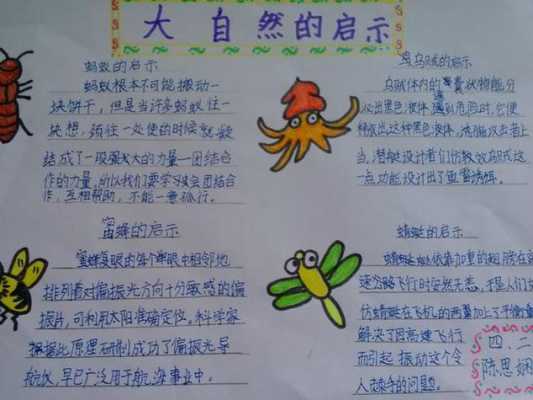 大自然的启示
蚂蚁的启示
蚂蚁根本不可能搬动一
块饼干，但是当许多蚂蚁往一
块想，演往一处使的时候就凝
结成了一股强大的力量—团结合
作的力量，所以我们要学习会团结合
作，互相帮助，不能一意孤行。
乌贼的启示
乌贼体内的囊状物能分
必出黑色液体，遇到危险时，它便
释放出这种黑色液体，
当，潜艇设计者们仿效乌贼这
一点功能设计出了鱼雷诱饵。
蜜蜂的启示
蜜蜂复眼的每个单眼中相邻地
排列着对偏振光方向十分敏感的偏
振片，可利用太阳准确定位。科学家
根据此原理研制成功了偏振光导
航仪，早已广泛用于航海事业中。
蜻蜓的启示
蜻蜓依靠加重的翅膀在高
速飞行时安然无恙，于是人们
仿蜻蜓在飞机的两翼加上了平衡重
解决了因高速飞行
而引起振动这个令
人棘手的问题。
四、二
陈思娴